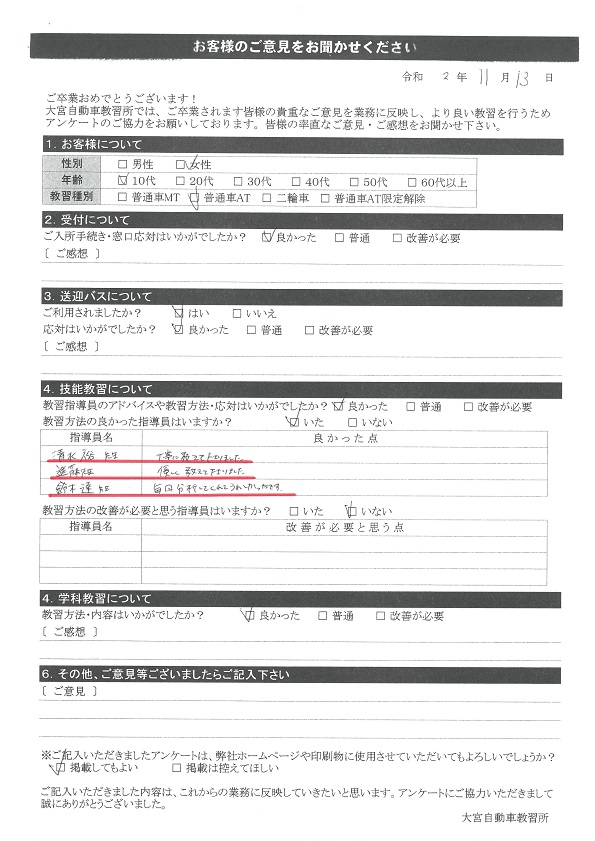 お客様のご意見をお聞かせください
令和 2 年 11 月 13 日
ご卒業おめでとうございます！
大宮自動車教習所では、ご卒業されます皆様の貴重なご意見を業務に反映し、より良い教習を行うため
アンケートのご協力をお願いしております。皆様の率直なご意見・ご感想をお聞かせ下さい。
1. お客様について
性別 □ 男性 ☑ 女性
年齢 ☑ 10代 □ 20代 □ 30代 □ 40代 □ 50代 □ 60代以上
教習種別 □ 普通車MT ☑ 普通車AT □ 二輪車 □ 普通車AT限定解除
2. 受付について
ご入所手続き・窓口応対はいかがでしたか？ ☑ 良かった □ 普通 □ 改善が必要
［ ご感想 ］
3. 送迎バスについて
ご利用されましたか？ ☑ はい □ いいえ
応対はいかがでしたか？ ☑ 良かった □ 普通 □ 改善が必要
［ ご感想 ］
4. 技能教習について
教習指導員のアドバイスや教習方法・応対はいかがでしたか？ ☑ 良かった □ 普通 □ 改善が必要
教習方法の良かった指導員はいますか？ ☑ いた □ いない
指導員名 良かった点
清水 裕 先生 丁寧に教えて下さりました。
遠藤先生 優しく教えて下さりました。
鈴木 達 先生 毎回分析してくれてうれしかったです。
教習方法の改善が必要と思う指導員はいますか？ □ いた ☑ いない
指導員名 改善が必要と思う点
4. 学科教習について
教習方法・内容はいかがでしたか？ ☑ 良かった □ 普通 □ 改善が必要
［ ご感想 ］
6. その他、ご意見等ございましたらご記入下さい
［ ご意見 ］
※ご記入いただきましたアンケートは、弊社ホームページや印刷物に使用させていただいてもよろしいでしょうか？
☑ 掲載してもよい □ 掲載は控えてほしい
ご記入いただきました内容は、これからの業務に反映していきたいと思います。アンケートにご協力いただきまして
誠にありがとうございました。
大宮自動車教習所